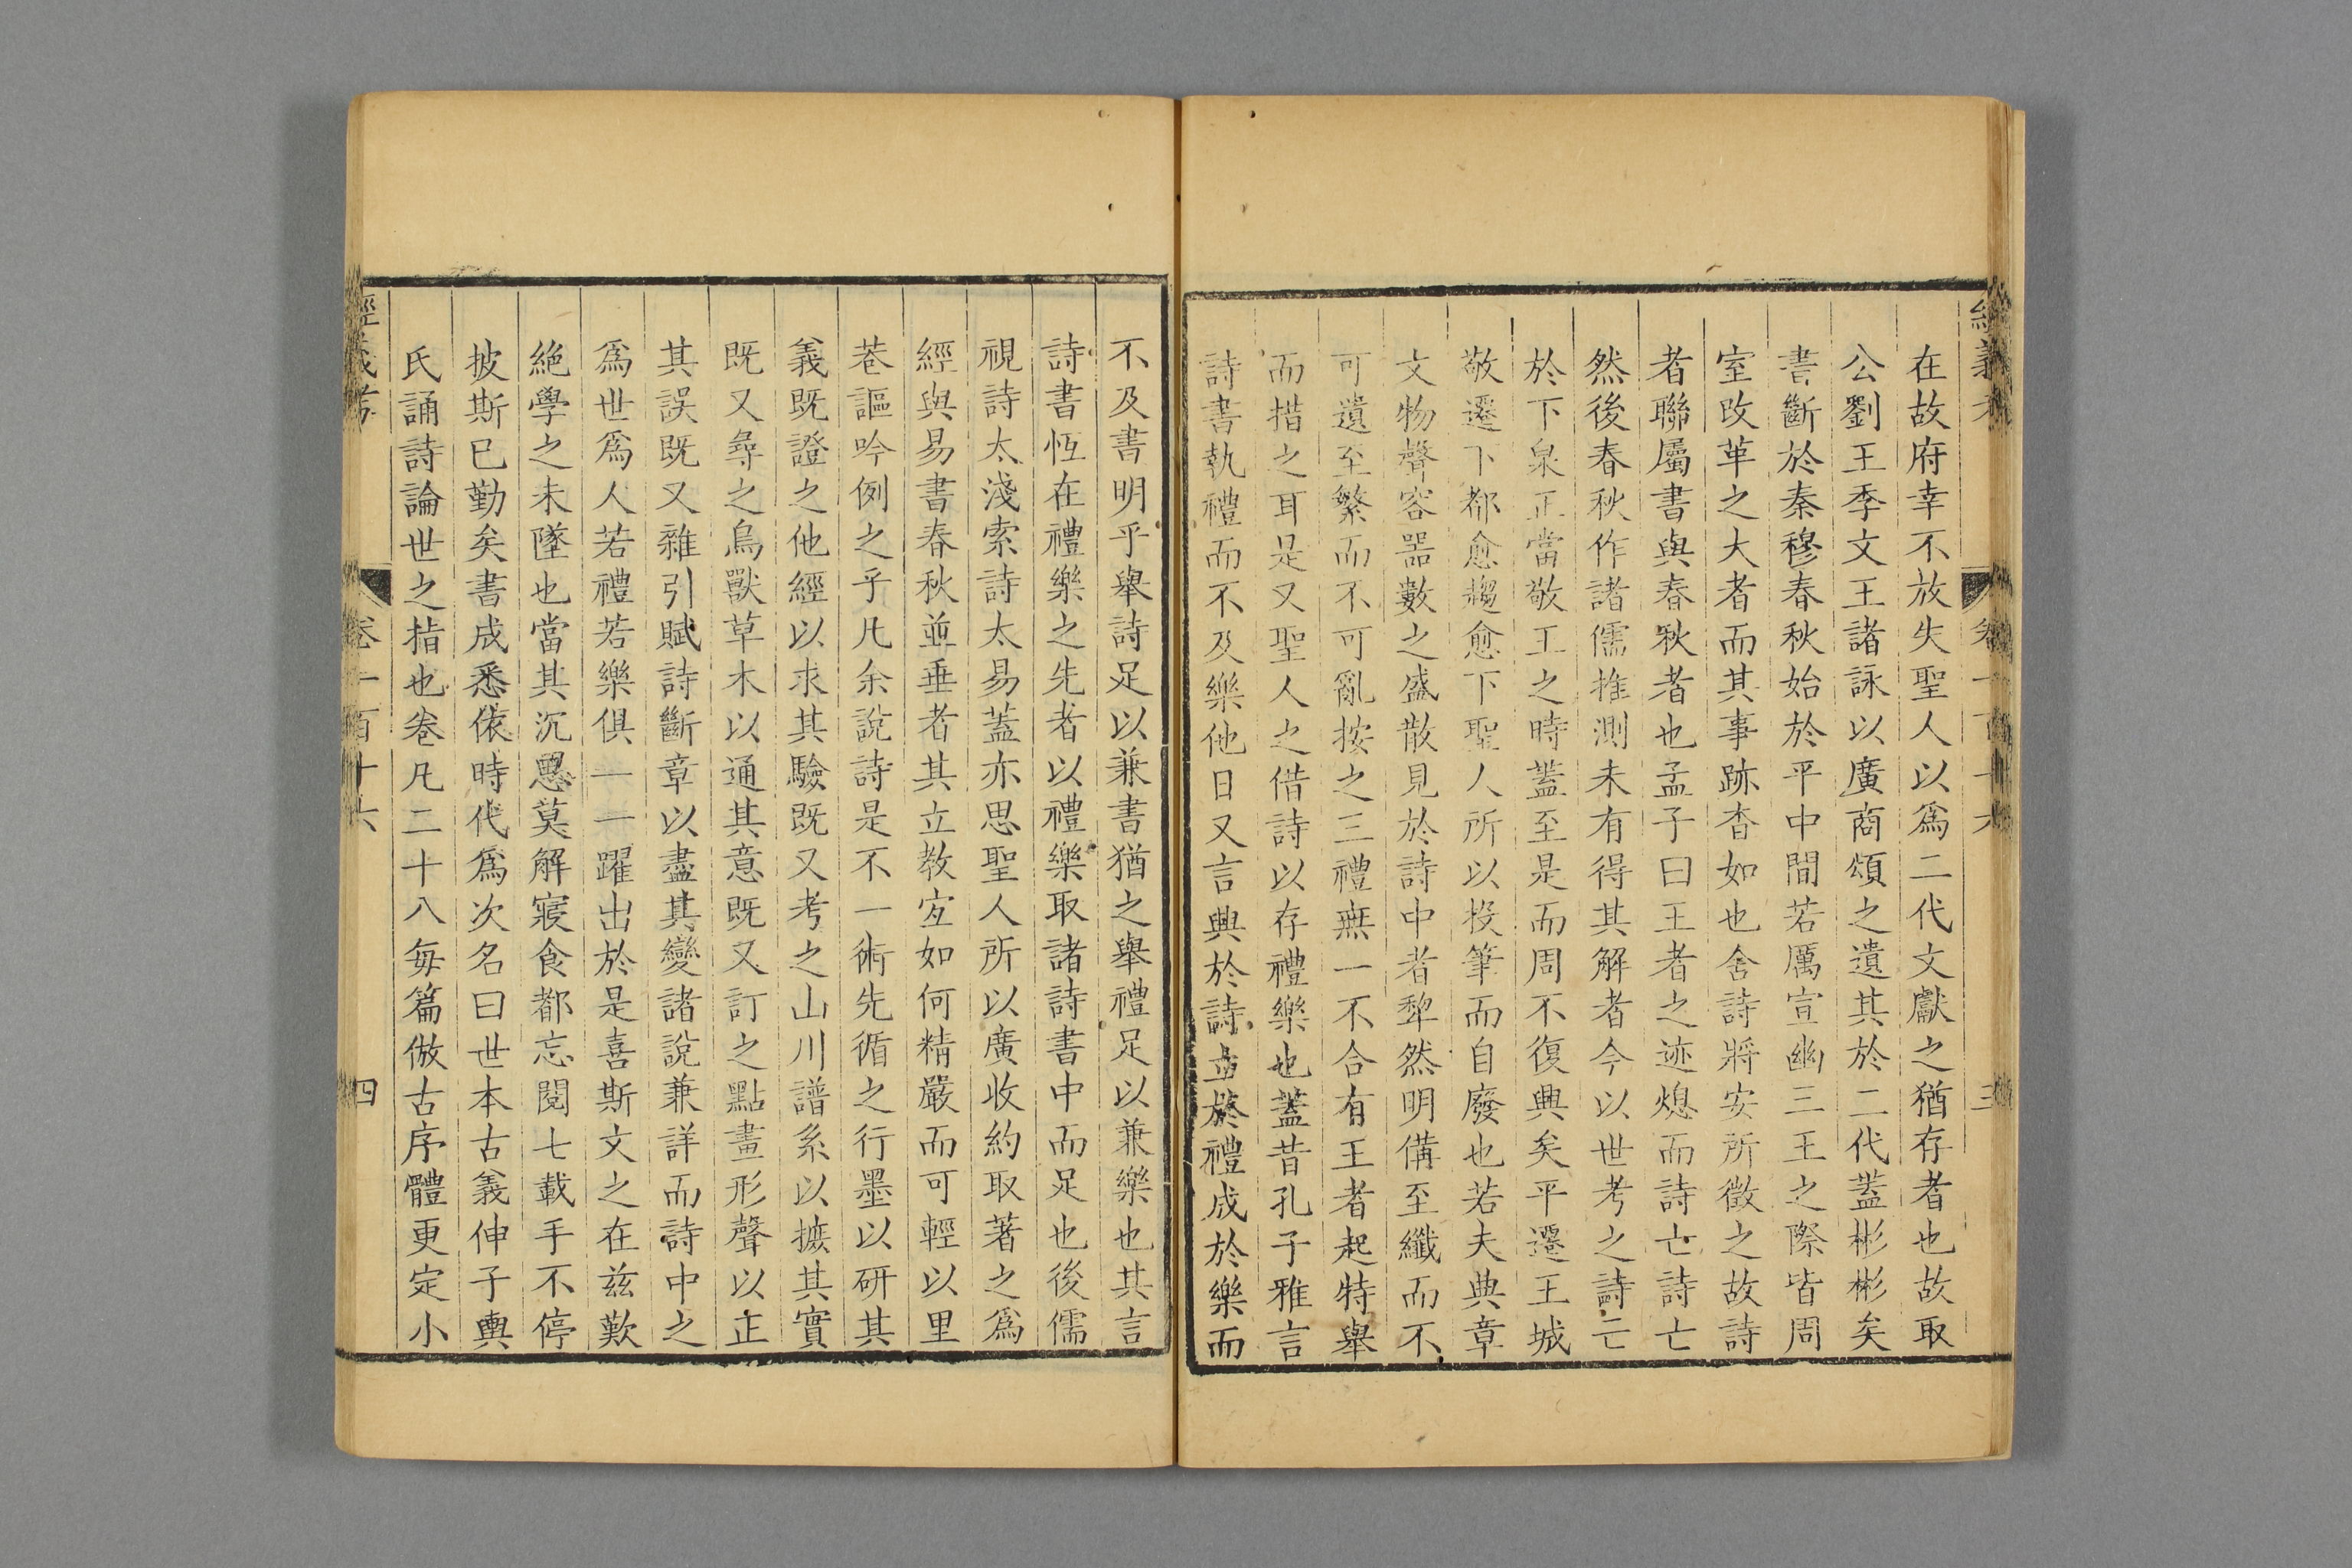 經義考 卷一百十六 三
在故府幸不放失聖人以爲二代文獻之猶存者也故取
公劉王季文王諸詠以廣商頌之遺其於二代葢彬彬矣
書斷於秦穆春秋始於平中間若厲宣幽三王之際皆周
室改革之大者而其事跡杳如也舍詩將安所徵之故詩
者聯屬書與春秋者也孟子曰王者之迹熄而詩亡詩亡
然後春秋作諸儒推測未有得其解者今以世考之詩亡
於下泉正當敬王之時葢至是而周不復興矣平遷王城
敬遷下都愈趨愈下聖人所以投筆而自廢也若夫典章
文物聲容噐數之盛散見於詩中者犂然明備至纖而不
可遺至繁而不可亂按之三禮無一不合有王者起特舉
而措之耳是又聖人之借詩以存禮樂也葢昔孔子雅言
詩書執禮而不及樂他日又言興於詩立於禮成於樂而
不及書明乎舉詩足以兼書猶之舉禮足以兼樂也其言
詩書恆在禮樂之先者以禮樂取諸詩書中而足也後儒
視詩太淺索詩太易葢亦思聖人所以廣收約取著之爲
經與易書春秋並垂者其立教宜如何精嚴而可輕以里
巷謳吟例之乎凡余說詩是不一術先循之行墨以研其
義既證之他經以求其驗既又考之山川譜系以摭其實
既又尋之鳥獸草木以通其意既又訂之點畫形聲以正
其誤既又雜引賦詩斷章以盡其變諸說兼詳而詩中之
爲世爲人若禮若樂俱一一躍出於是喜斯文之在茲歎
絕學之未墜也當其沉思莫解寢食都忘閱七載手不停
披斯已勤矣書成悉依時代爲次名曰世本古義伸子輿
氏誦詩論世之指也卷凡二十八每篇倣古序體更定小
經義考 卷一百十六 四